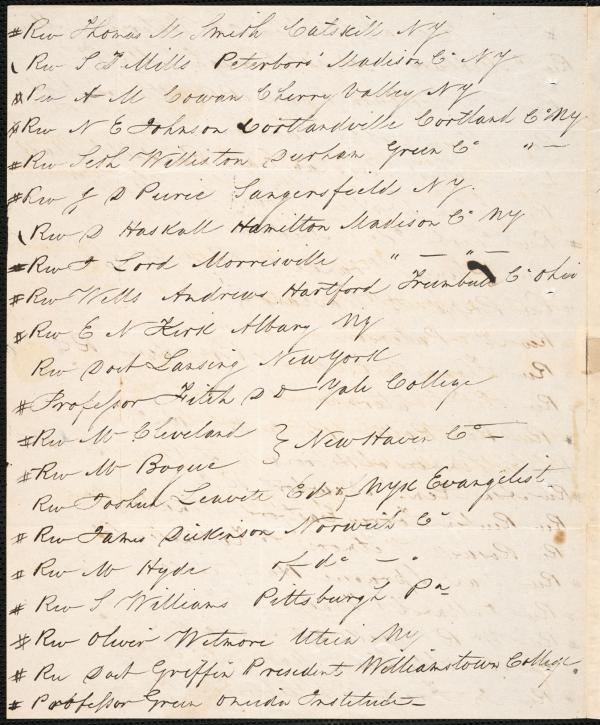 # Rev Thomas M Smith Catskill NY
\ Rev S T Mills Peterboro' Madison Co NY
# Rev A M Cowan Cherry Valley NY
# Rev N E Johnson Cortlandville Cortland Co NY
# Rev Seth Williston Durham Green Co " —
# Rev J D Pierie Sangersfield NY.
\ Rev D Haskall Hamilton Madison Co NY
# Rev I Lord Morrisville " — " —
# Rev Wells Andrews Hartford Trumbull Co Ohio
# Rev E N Kirk Albany NY
Rev Doct Lansing New York
# Professor Fitch D D Yale College
# Rev Mr Cleveland } New Haven Ct —
# Rev Mr Bogue
Rev Joshua Leavitt Ed of NYk Evangelist.
# Rev James Dickinson Norwich Ct
# Rev Mr Hyde of do — "
# Rev S Williams Pittsburgh Pa
# Rev Oliver Wetmore Utica NY
# Rev Doct Griffin President Williamstown College.
# Professor Green Oneida Institute —